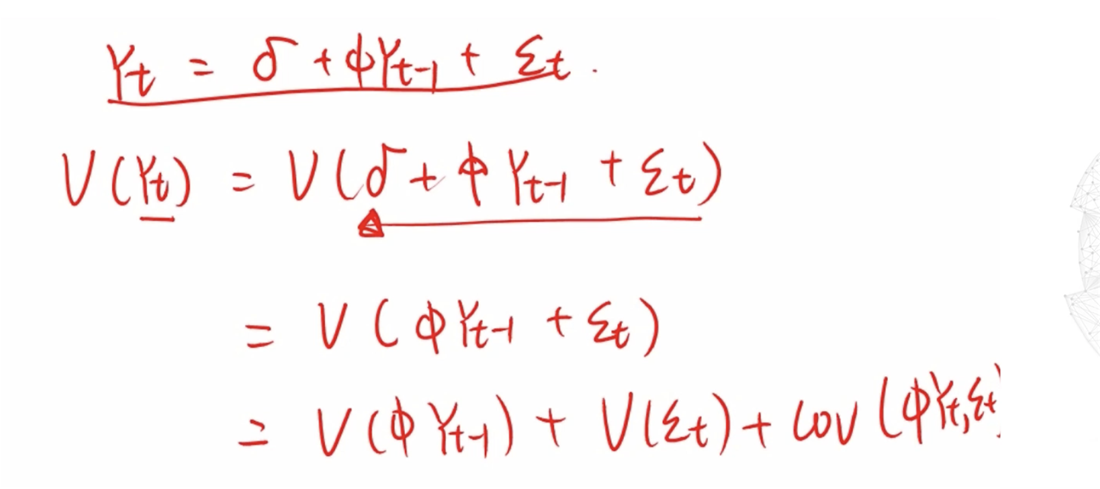 Yt = δ + ϕYt-1 + Σt .
V(Yt) = V(δ + ϕ Yt-1 + Σt)
= V(ϕYt-1 + Σt)
= V(ϕ Yt-1) + V(Σt) + Cov(ϕYt, Σt)